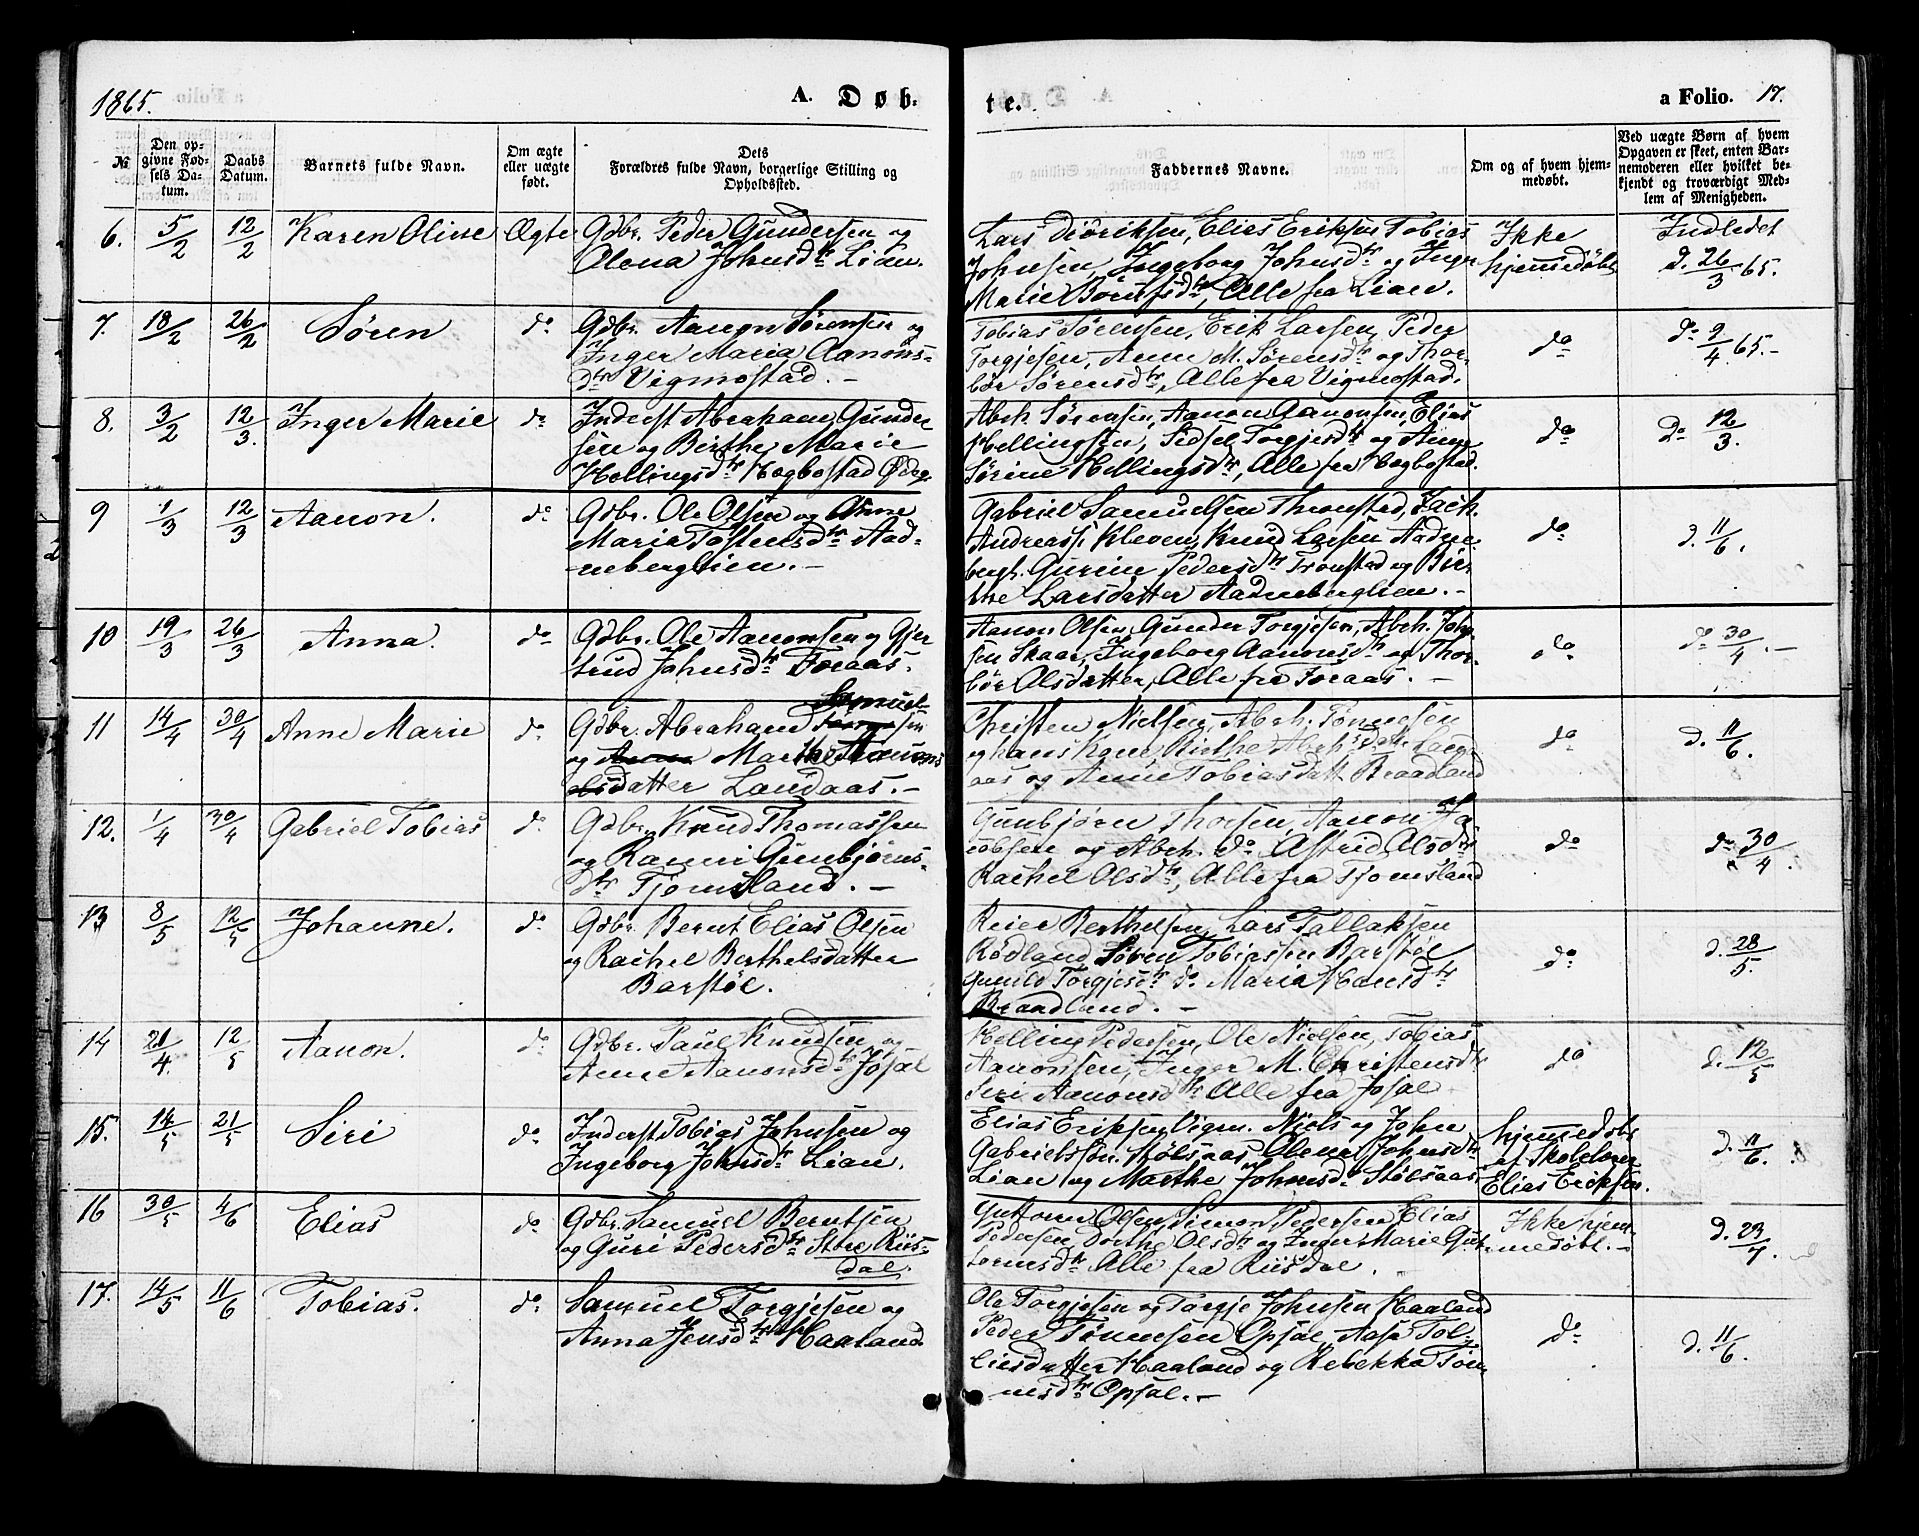 1865.
A. Døb-
te.
a Folio. 17.
№
Den op-
givne Fød-
sels Da-
tum.
Daabs
Datum.
Barnets fulde Navn.
Om ægte
eller uægte
født.
Dets
Forældres fulde Navn, borgerlige Stilling og
Opholdssted.
Faddernes Navne.
Om og af hvem hjem-
medøbt.
Ved uægte Børn af hvem
Opgaven er skeet, enten Bar-
nemoderen eller hvilket be-
kjendt og troværdigt Med-
lem af Menigheden.
6. 5/2 12/2 Karen Oline Ægte
Gdbr. Peder Gundersen og
Olena Johnsdtr Lian.
Lars Diðriksen, Elias Eriksen Tobias
Johnsen, Ingeborg Johnsdtr og Inger
Marie Berntsdtr, Alle fra Lian.
Ikke
hjemmedøbt
Indledet
d. 26/3 65.
7. 18/2 26/2 Søren do
Gdbr. Aanon Sørensen og
Inger Maria Aanons-
dtr Vigmostad. -
Tobias Sørensen, Erik Larsen, Peder
Torgjesen, Anne M. Sørensdtr og Thor-
bør Sørensdtr, Alle fra Vigmostad.
do
do 9/4 65.-
8. 3/2 12/3. Inger Marie do
Inderst Abraham Gunder
sen og Birthe Marie
Hellingsdtr Hægbostad Ødeg.
Abrh. Sørensen, Aanon Aanonsen, Elias
Hellingsen, Sidsel Torgjesdtr og Anne
Sørine Hellingsdtr, Alle fra Hægbostad.
do
Do 12/3.
9 1/3 12/3 Aanon. do
Gdbr. Ole Olsen og Anne
Maria Tostensdtr Aad-
neberglien. -
Gabriel Samuelsen Thronstad, Zach.
Andreass. Kleven, Knud Larsen Aadne-
bergh. Gurine Pedersdtr Tronstad og Bir-
the Larsdatter Aadneberglien. -
do
d. 11/6.
10 19/3 26/3 Anna. do
Gdbr. Ole Aanonsen og Gjer
trud Johnsdtr Foraas.
Aanon Olsen, Gunder Torgjesen, Abrh. John-
sen Skaar, Ingeborg Aanonsdtr og Thor-
bør Olsdatter, Alle fra Foraas. -
do
do 30/4. -
11 14/4 30/4 Anne Marie do
Samuel
Gdbr. Abraham sen
og Anna Marthe Aanons
datter Landaas. -
Christen Nielsen, Abrh. Tønnesen
og hans Kone Birthe Abrh.sdatt. Land-
aas og Anne Tobiasdatt Braadland
do
d. 11/6.
12. 1/4 30/4 Gabriel Tobias do
Gdbr. Knud Thomassen
og Ranni Gunbjørns-
dtr Tjomsland. -
Gunbjørn Thorsen, Aanon Ja-
cobsen og Abrh. do Astrid Olsdtr
Rachel Olsdtr, Alle fra Tjomsland
do
do 30/4.
13 8/5 12/5 Johanne. do
Gdbr. Bernt Elias Olsen
og Rachel Berthelsdatter
Barstøl.
Reier Berthelsen, Lars Tallaksen
Rødland Søren Tobiassen Barstøl
Gunild Torgjesdtr do Maria Hansdtr
Braadland. -
do
d. 28/5.
14 21/4. 12/5 Aanon. do
Gdbr. Paul Knudsen og
Anne Aanonsdtr Josal
Helling Pedersen, Ole Nielsen, Tobias
Aanonsen, Inger M. Christensdtr
Siri Aanonsdtr Alle fra Josal
do
d. 12/5
15. 14/5 21/5 Siri do
Inderst Tobias Johnsen og
Ingeborg Johnsdtr Lian.
Elias Eriksen Vigm. Niels og John
Gabrielssøn. Stølsaas, Olene Johnsdtr
Lian og Marthe Johnsdtr Stølsaas,
hjemmedøbt
af Skolelærer
Elias Eriksen.
d. 11/6.
16 30/5 4/6 Elias do
Gdbr. Samuel Berntsen
og Guri Pedersdtr Store Riis-
dal.
Guttorm Olsen, Simon Pedersen Elias
Pedersen, Dorthe Olsdtr og Inger Marie Gut-
tormsdtr Alle fra Riisdal.
Ikke hjem-
medøbt. -
d. 23/7.
17. 14/5 11/6 Tobias. do
Samuel Torgjesen og
Anna Jensdtr Haaland
Ole Torgjesen og Torgje Johnsen Haaland
Peder Tønnesen Opsal, Aase Tol-
liesdatter Haaland og Rebekka Tøn-
nesdtr Opsal. -
do
d. 11/6.